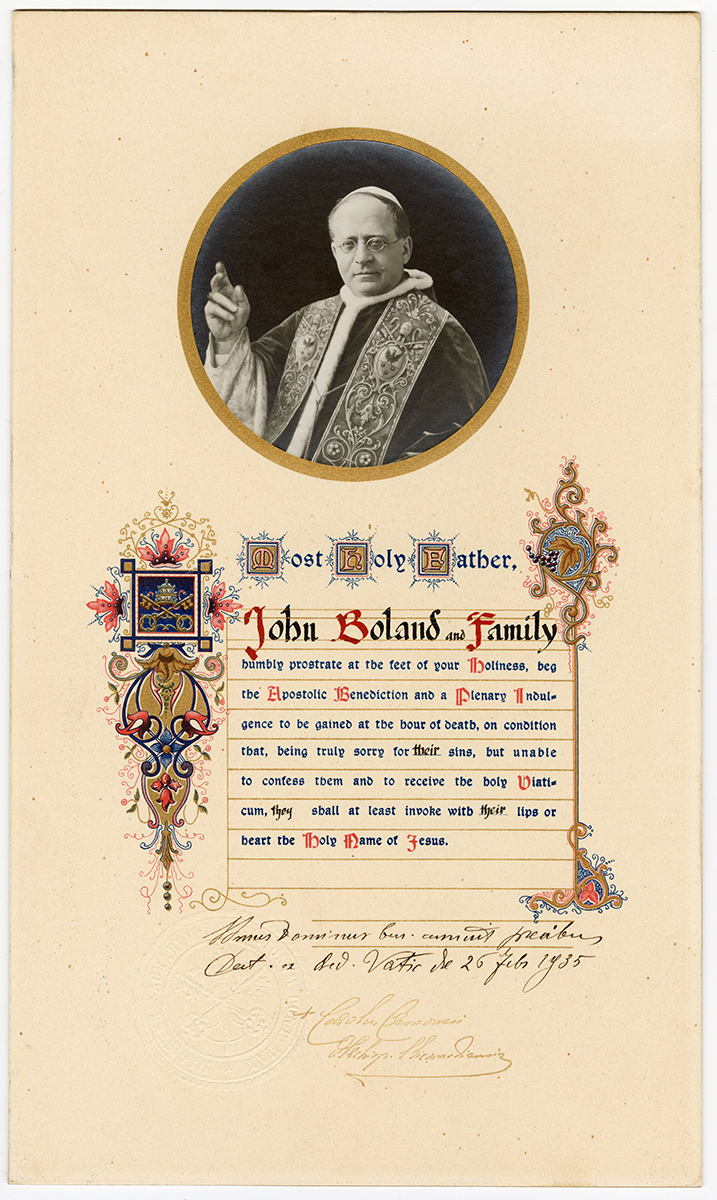 Most Holy Father,
John Boland and Family
humbly prostrate at the feet of your Holiness, beg
the Apostolic Benediction and a Plenary Indul-
gence to be gained at the hour of death, on condition
that, being truly sorry for their sins, but unable
to confess them and to receive the holy Viati-
cum, they shall at least invoke with their lips or
heart the Holy Name of Jesus.
Dominus
Vatic die 26 Feb 1935